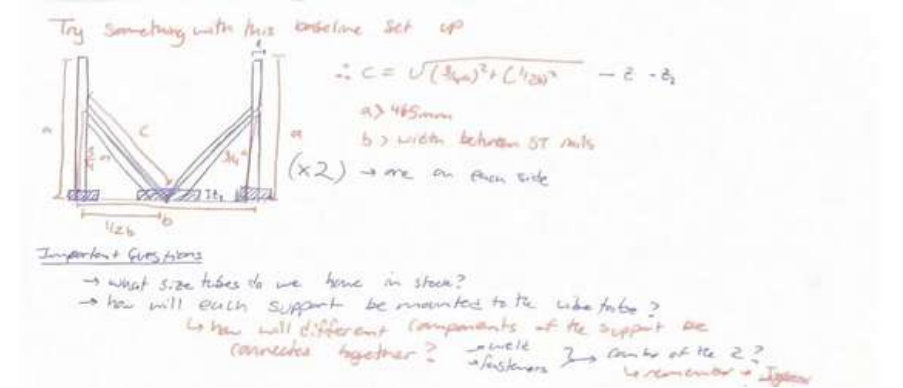 Try something with this baseline set up
t
∴ C = √(3/4a)² + (1/2b)² - z - z₂
a > 465mm
b > width between ST rails
(x2) → one on each side
a
C
3/4 a
3/4 a
a
1/2b
b
Important Questions
→ what size tubes do we have in stock?
→ how will each support be mounted to the cube tube?
↳ how will different components of the support be
connected together? → weld
→ fasteners } → combo of the 2?
↳ remember →